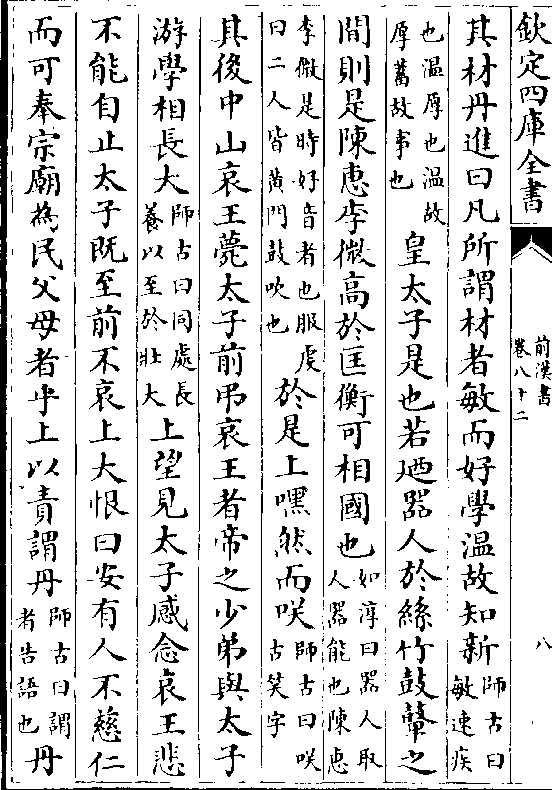 欽定四庫全書
前漢書
卷八十二
八
其材丹進曰凡所謂材者敏而好學温故知新師古曰敏速疾
也温厚也温故厚蓄故事也皇太子是也若廼器人於絲竹鼓鼙之
間則是陳惠李微高於匡衡可相國也如淳曰器人取人器能也陳惠
李微是時好音者也服䖍曰二人皆黄門鼓吹也於是上嘿然而咲師古曰咲古笑字
其後中山哀王薨太子前弔哀王者帝之少弟與太子
游學相長大師古曰同處長養以至於壯大上望見太子感念哀王悲
不能自止太子既至前不哀上大恨曰安有人不慈仁
而可奉宗廟為民父母者乎上以責謂丹師古曰謂者告語也丹